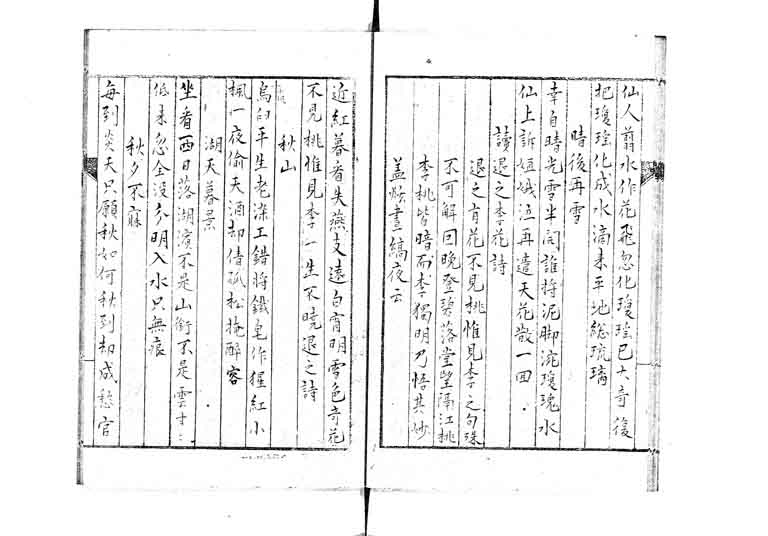 仙人翦水作花飛忽化瓊瑤已大奇後
把瓊瑤化成水滴来平地総琉璃
晴後再雪
幸自晴光雪半闲誰將泥脚浣瓊瑰水
仙上訴姮娥泣再遣天花散一回
讀退之李花詩
退之有花不見桃惟見李之句殊
不可解囙晚登碧落堂望隔江桃
李桃皆暗而李獨明乃悟其妙
盖炫晝縞夜云
近紅暮看失燕支遠白宵明雪色奇花
不見桃惟見李一生不暁退之詩
秋山
烏臼平生老染工錯將鐵皂作猩紅小
楓一夜偷天酒却倩孤松掩醉容
湖天暮景
坐看西日落湖濱不是山銜不是雲寸寸
低来忽全没分明入水只無痕
秋夕不寐
每到炎天只願秋如何秋到却成愁官